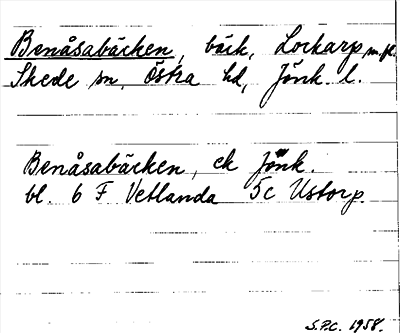 Benåsabäcken, bäck, Lockarp m.fl.
Skede sn, Östra hd, Jönk. l.
Benåsabäcken, ek Jönk.
bl. 6 F Vetlanda 5c Ustorp.
S.P.C. 1958.